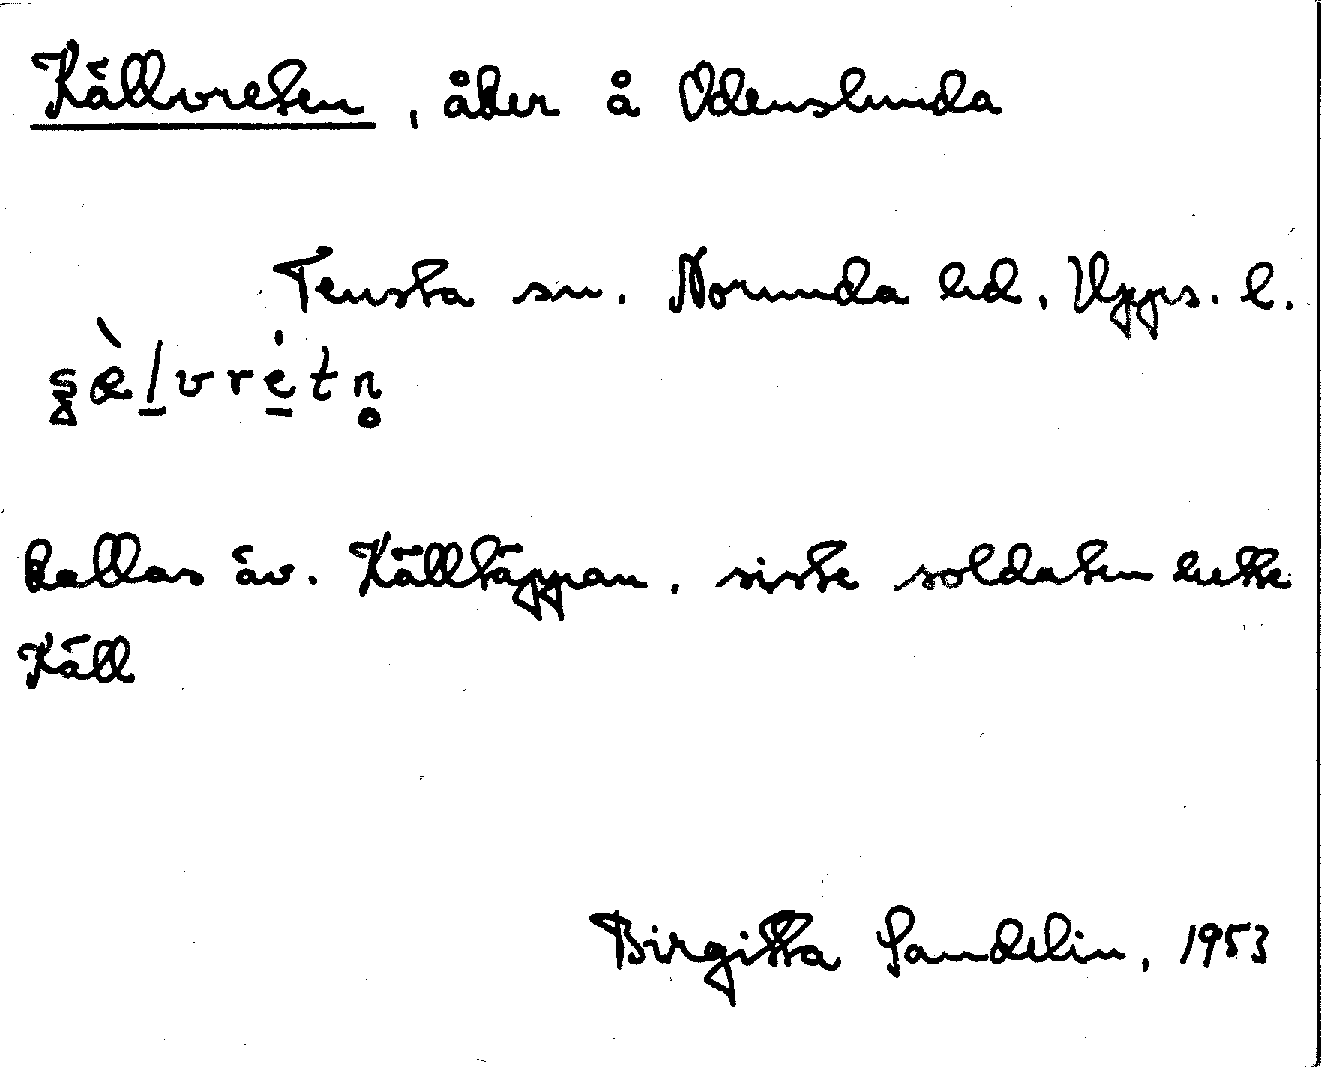 Källvreten, åker å Odenslunda
Tensta sn. Norunda hd, Upps. l.
s̯æ̀l̠vrė̠tn̥
Kallas äv. Källtäppan, siste soldaten hette
Käll
Birgitta Sandelin, 1953